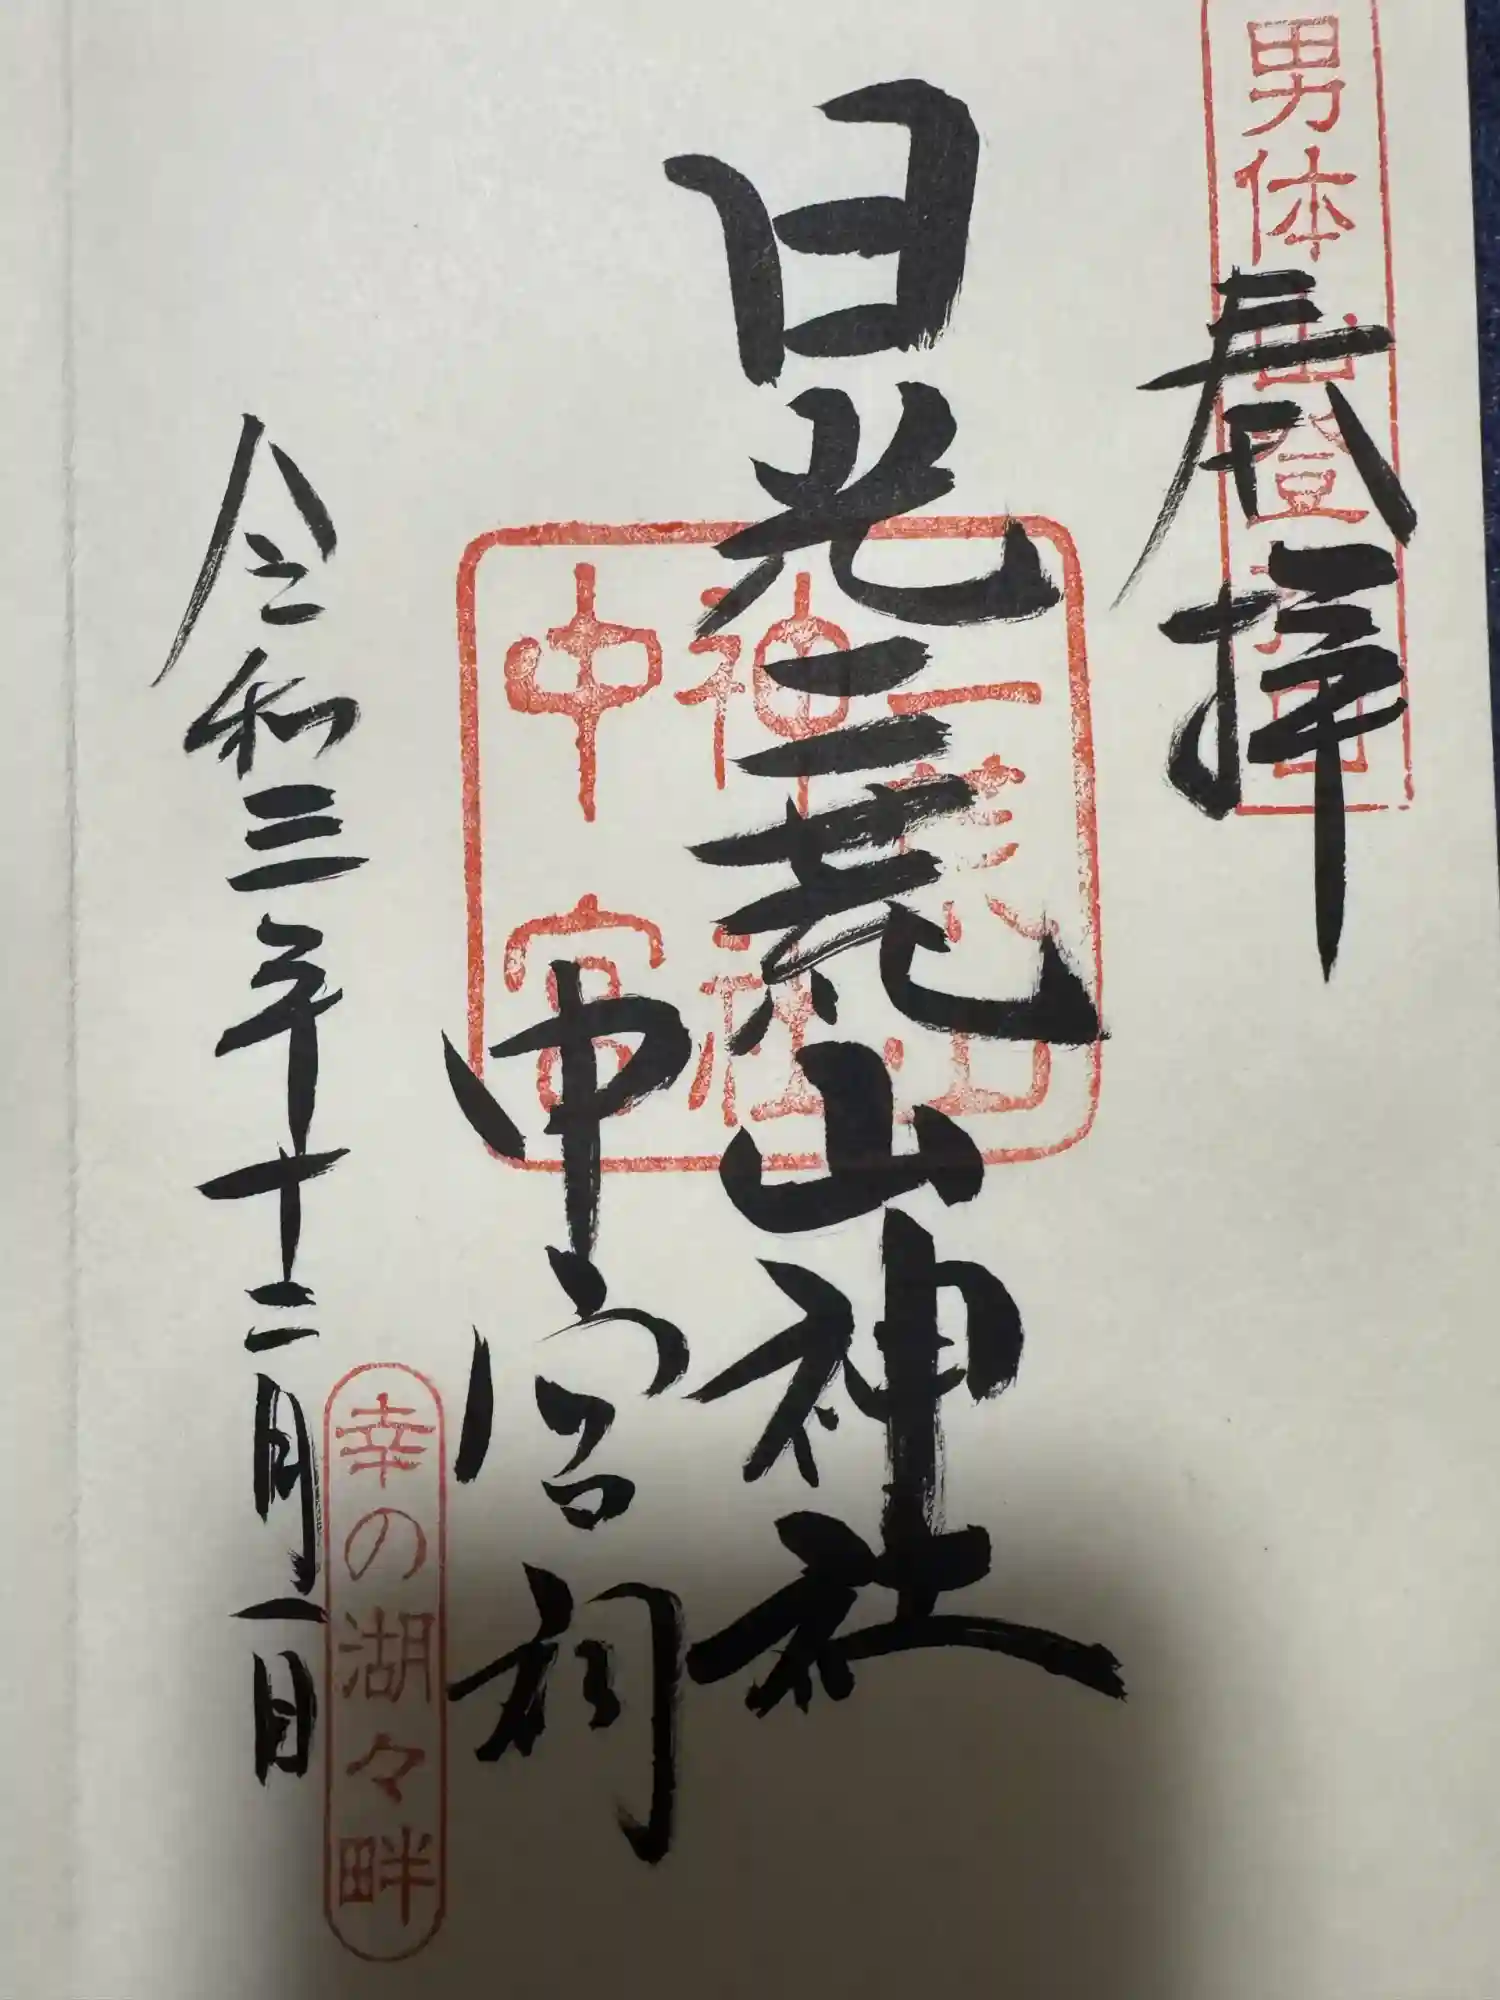 男体山登拝口
奉拝
日光二荒山神社
二荒山
神社
中宮
中宮祠
幸の湖々畔
令和三年十二月一日